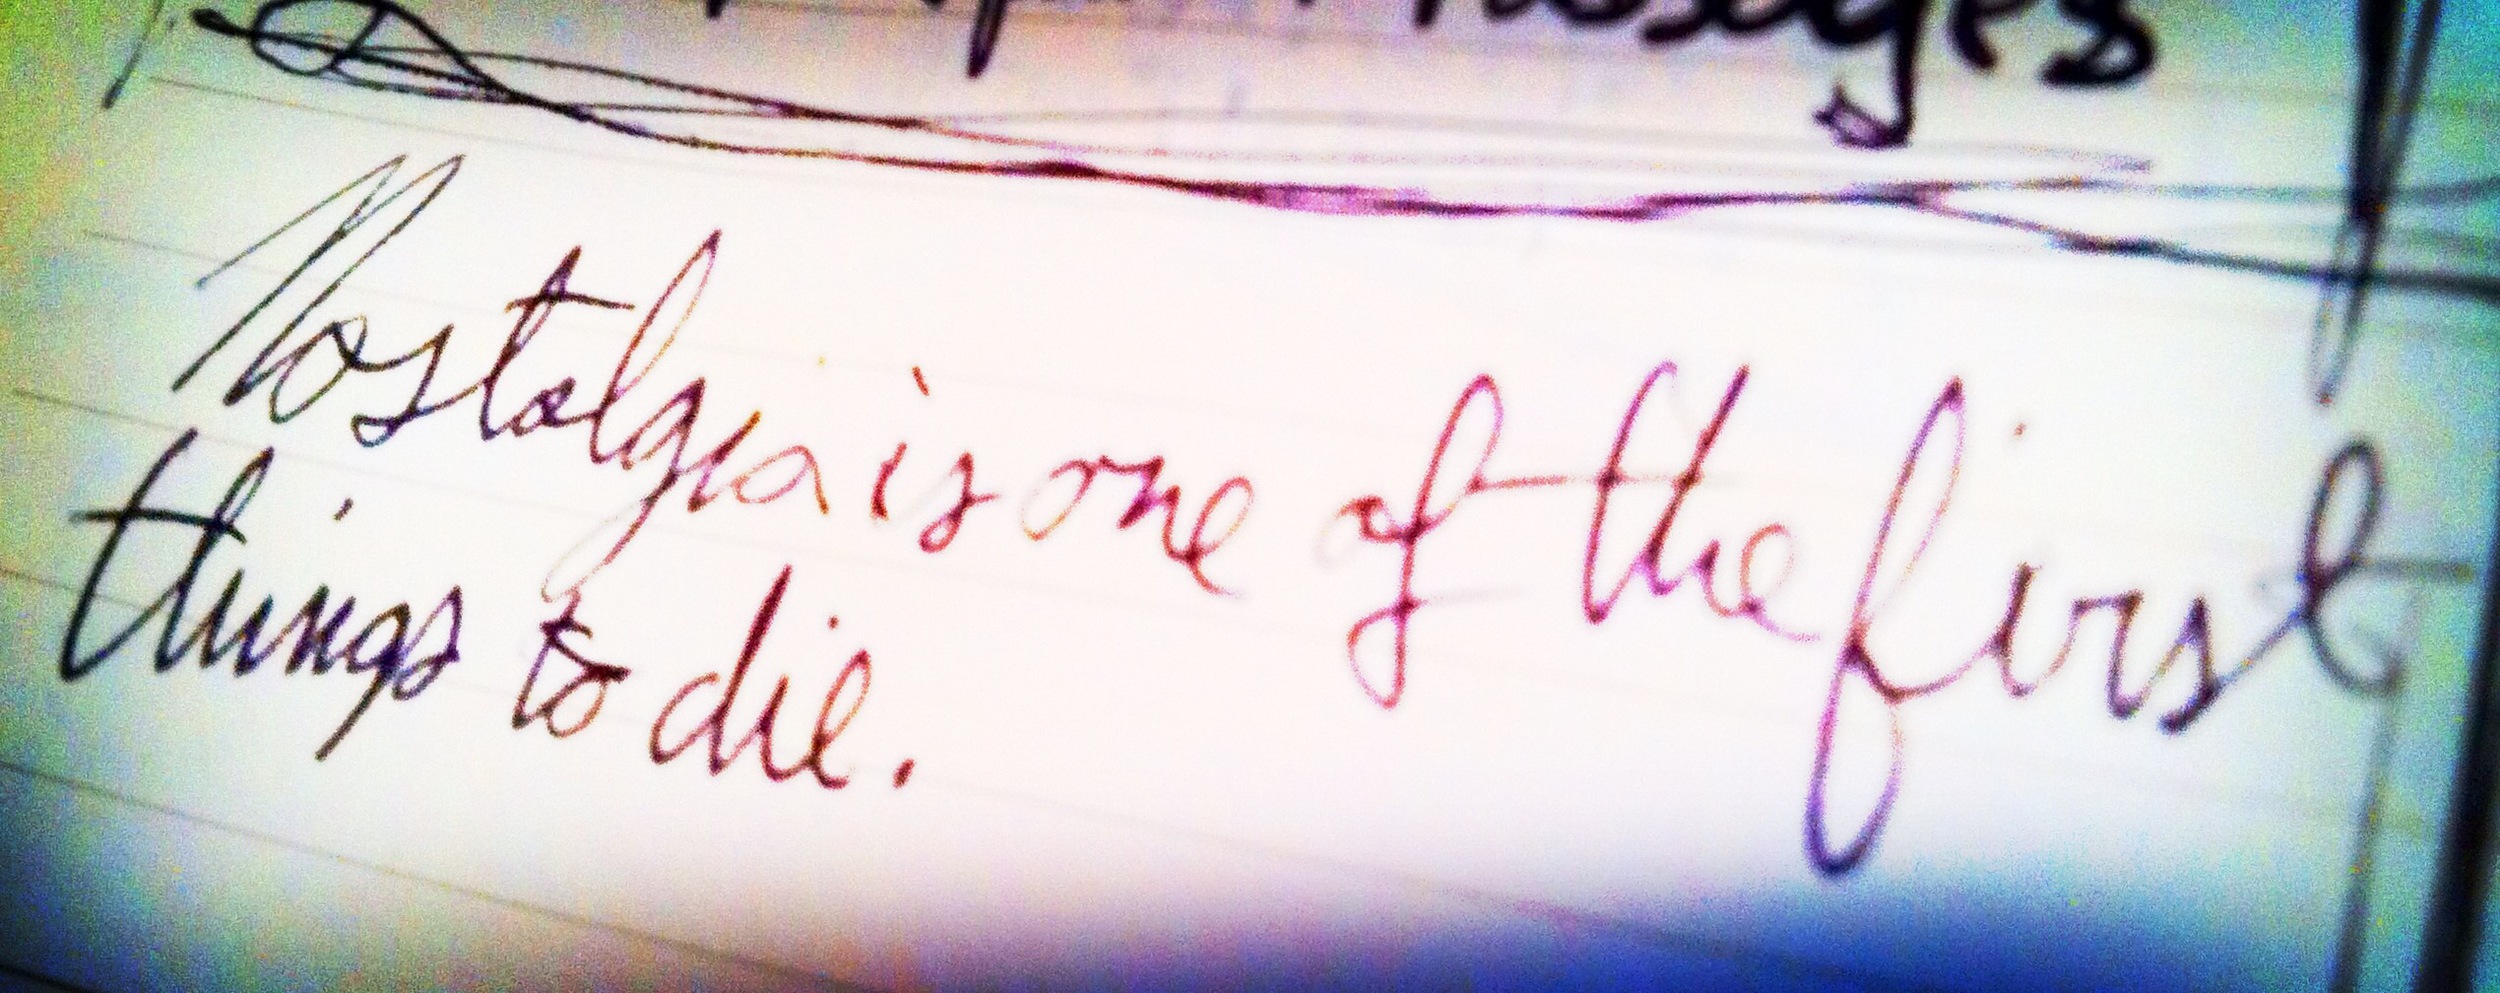 Nostalgia is one of the first
things to die.